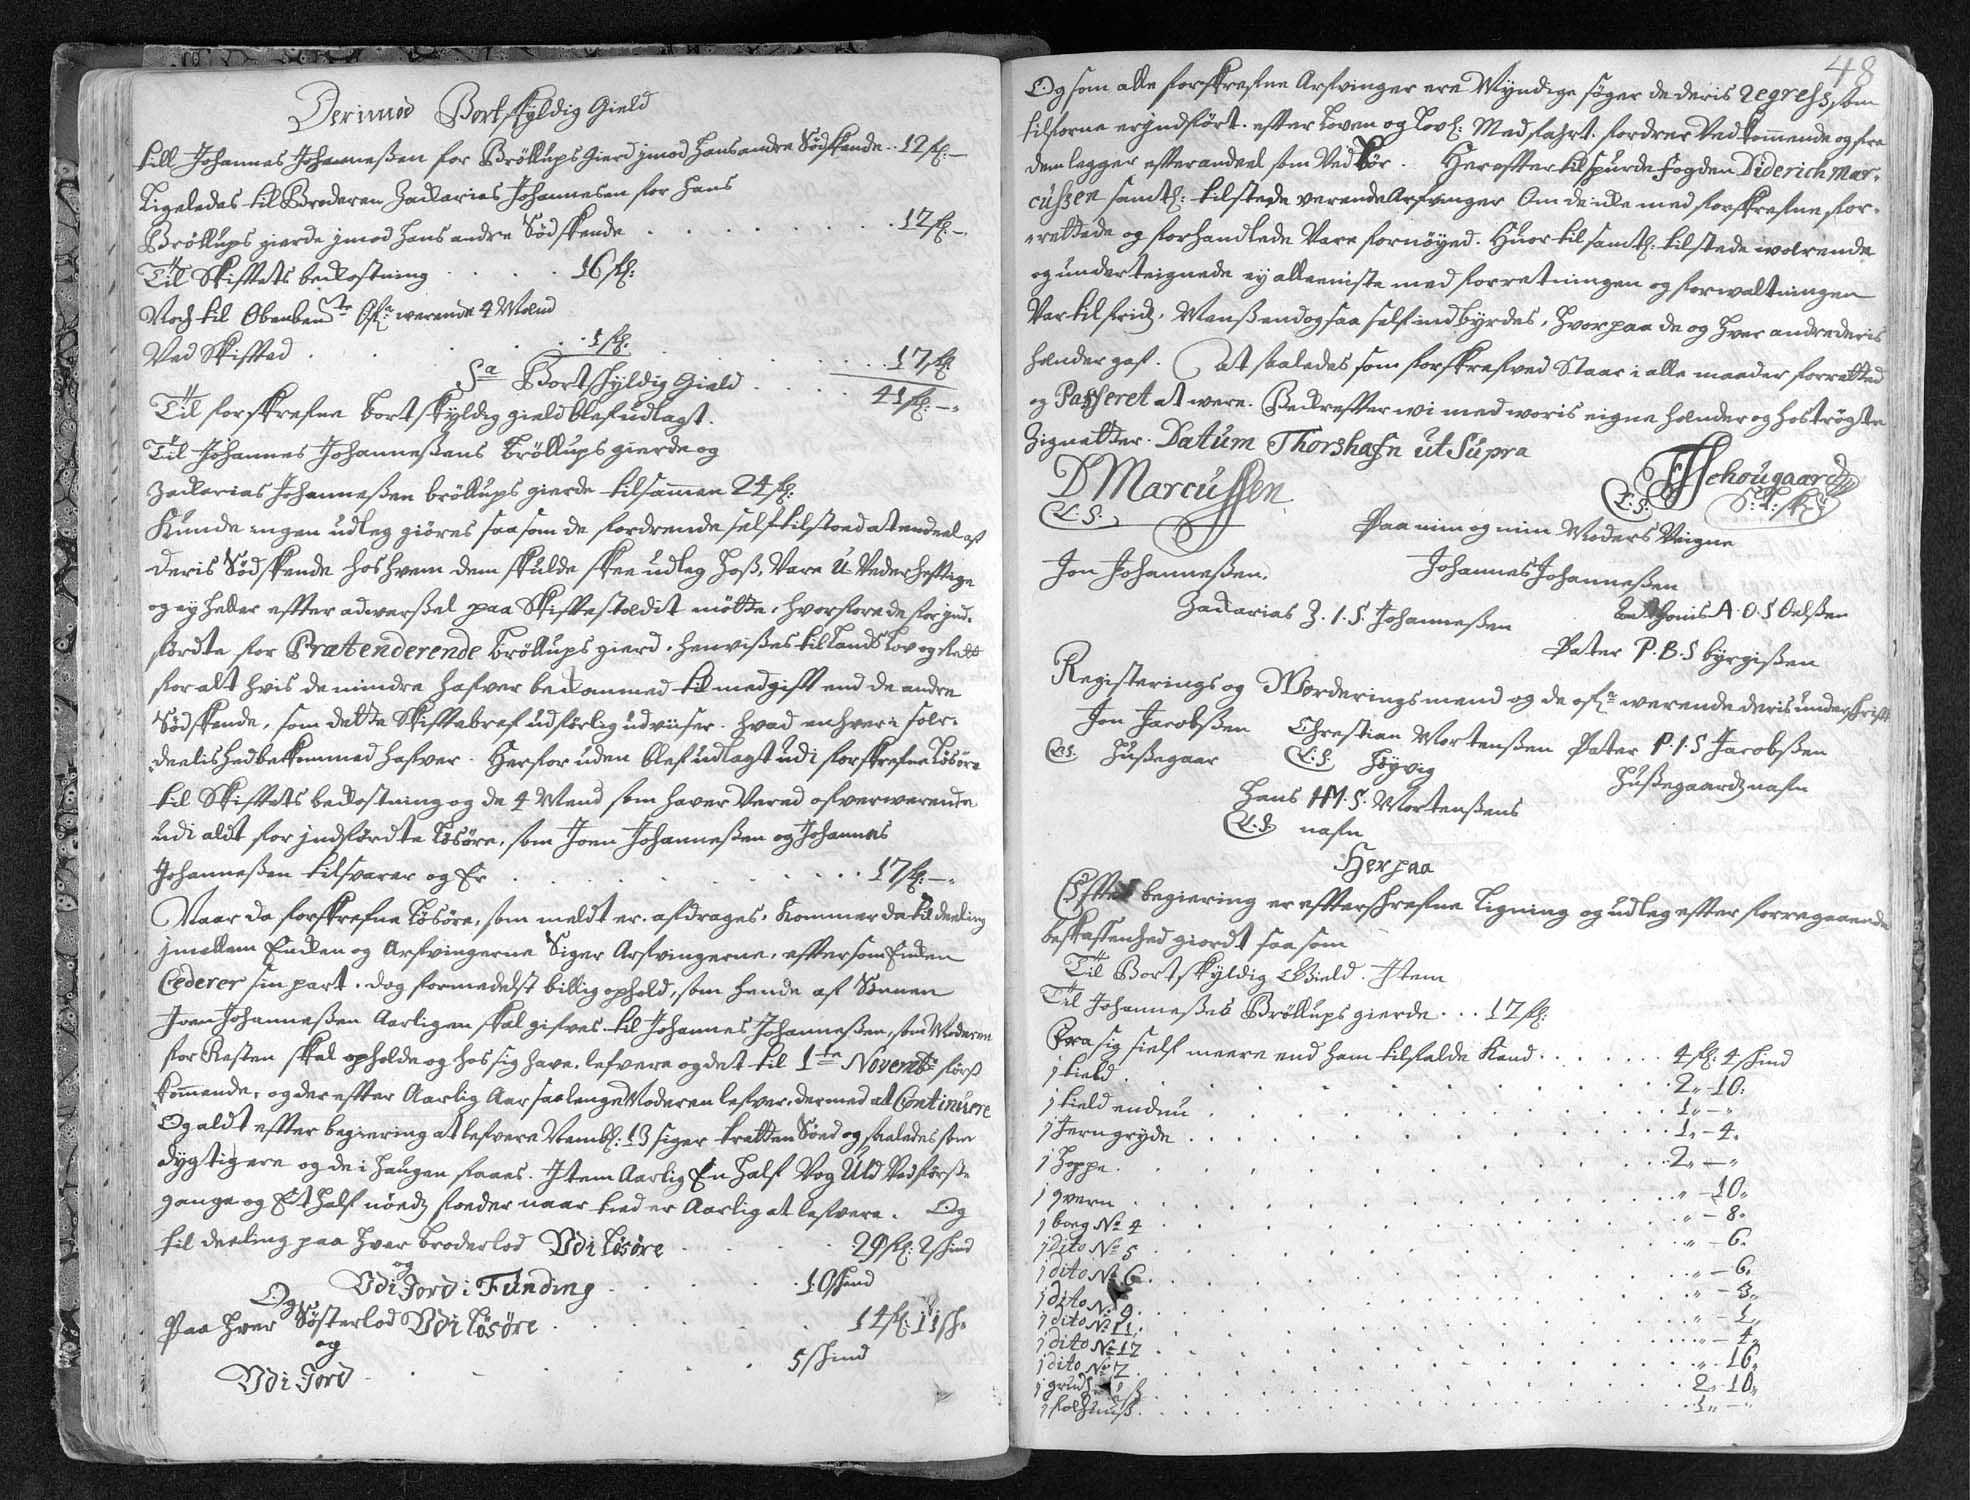 Derimod Bortskyldig Gield
till Johannes Johanneßen for Bröllups Gierd jmod hans andre Södskende .. 12 fl: —
Ligeledes til Broderen Zacharias Johannesen for hans
Bröllups gierde jmod hans andre Södskende . . . . . 12 fl: —
Til Skiftets bekostning . . . . 16 fl:
Noch til Obenbend.te Ofr werende 4 Mænd
Ved Skiftet . . . . 1 fl: . . . . 17 fl:
Sa Bortskyldig Gield . . . . 41 fl: —
Til forskrefne bortskyldig gield blef udlagt.
Til Johannes Johanneßens Bröllups gierde og
Zacharias Johanneßen bröllups gierde tilsamen 24 fl:
Kunde ingen udleg giöres saasom de fordrende self tilstoed at endeel af
deris Södskende hos hvem dem skulde skee udleg hoß, Vare U-Vederheftige
og ej heller effter adwarßel paa Skiftestædit mötte, hvorfore de for jnd-
fördte for Prætenderende bröllups gierd, henvißes til Lands Lov og rett
for alt hvis de mindre hafver bekommed til medgift end de andre
Södskende, som dette Skiftebref udförlig udviser hvad enhver i sær-
deelished bekommed hafver. Herfor uden blef udlagt udi forskrefne Lösöre
til Skiftets bekostning og de 4 Mend som haver Vered ofverwerende
udi aldt for jndfördte Lösöre, som Joen Johanneßen og Johannes
Johanneßen tilsvarer og Er . . . . 17 fl: —
Naar da forskrefne Lösöre, som meldt er, afdrages, Kommer da til deeling
jmellem Encken og Arfvingerne Siger Arfvingerne, efftersom Encken
Cederer sin part, dog formedelst billig ophold, som hende af Sönnen
Joen Johanneßen Aarligen skal gifves til Johannes Johanneßen, som Moderen
for Resten skal opholde og hos sig have, lefvere og det til 1te Novemb: först
kommende, og der effter Aarlig Aar saa lenge Moderen lefver, dermed at Continuere
Og aldt effter begiering at lefvere Nembl: 13 siger tretten Söed og saaledes som
dygtig ere og de i haugen faaes. Item Aarlig En half Vog Uld Ved förste
gange og Et half nöedz foeder naar tied er Aarlig at lefvere. Og
til deeling paa hver broderlod Udi Lösöre . . . . 29 fl: 2 skind
og
Udi Jord i Funding . . . . 10 skind
Og
Paa hver Sösterlod Udi Lösöre . . . . 14 fl: 11 sk:
og
Udi Jord . . . . 5 skind
48
Og som alle forskrefne Arfvinger ere Myndige söger de deris regress, som
tilforne er jndfört. effter Loven og Lovl: Medfahrt. fordrer Vedkommende og fra
dem legger effter andeel som Ved bör. Hereffter tilspurde fogden Diderich Mar-
cussen samtl: tilstede verende Arfvinger Om de icke med forskrefne for-
rettede og forhandlede Vare fornöyed. Huor til samtl: tilstede wærende
og underteignede ey alleeniste med forretningen og forwaltningen
Var tilfridz, Menßendog saa self indbyrdes, hvorpaa de og hver andre deris
hænder gaf. At saaledes som forskrefved Staar i alle maader forretted
og Passeret at were. Bekreffter wi med woris eigne hænder og hoströgte
Zignetter. Datum Thorshafn ut Supra
D Marcussen
L. S.
Schougaard
L. S.
Paa min og min Moders Veigne
Jon Johanneßen.
Johannes Johanneßen
Zacharias Z. I. S. Johanneßen
Thonis A. O. S Oelßen
Peter P. B. S byrgißen
Registerings ogWorderings mend og de ofr werende deris underskrift
Jon Jacobßen
Christian Mortenßen
Peter P. I. S Jacobßen
L. S. Hußegaar
L. S. Höyvig
Hußegaardz nafn
Hans HM. S. Mortenßens
L. S. nafn
Herpaa
Effter begiering er efterschrefne Ligning og udleg effter forregaaende
beskaffenhed giordt saasom
Til Bortskyldig Gield. Item
Til Johanneßes Bröllups gierde . . . 17 fl:
Fra sig sielf meere end ham tilfalde Kand . . . . 4 fl: 4 skind
1 kield . . . . 2„ 10:
1 kield endnu . . . . 1„ — „
1 Jerngryde . . . . 1„ — 4„
1 hoppe . . . . 2„ — „
1 qvern . . . . „ — 10„
1 boeg No 4 . . . . „ — 8„
1 dito No 5 . . . . „ — 6„
1 dito No 6 . . . . „ — 6„
1 dito No 9 . . . . „ — 3„
1 dito No 11 . . . . „ — 1„
1 dito No 12 . . . . „ — 4„
1 dito No 7 . . . . „ — 16„
. . . . 2„ 10„
. . . . 1„ — „